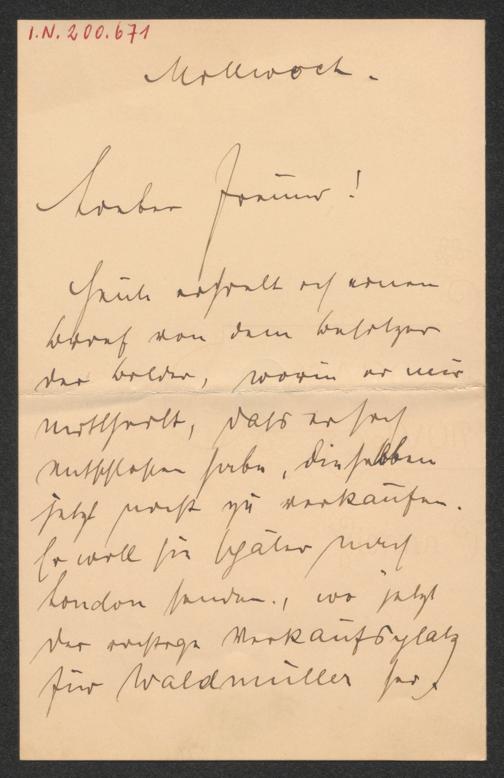 I.N. 200.671
Mittwoch.
Lieber Freund!
Heute erhielt ich einen
Brief von dem Besitzer
der Bilder, worin er mir
mittheilt, dass er sich
entschlossen habe, dieselben
jetzt nicht zu verkaufen.
Er will sie später nach
London senden, wo jetzt
der richtige Verkaufsplatz
für Waldmüller sei.